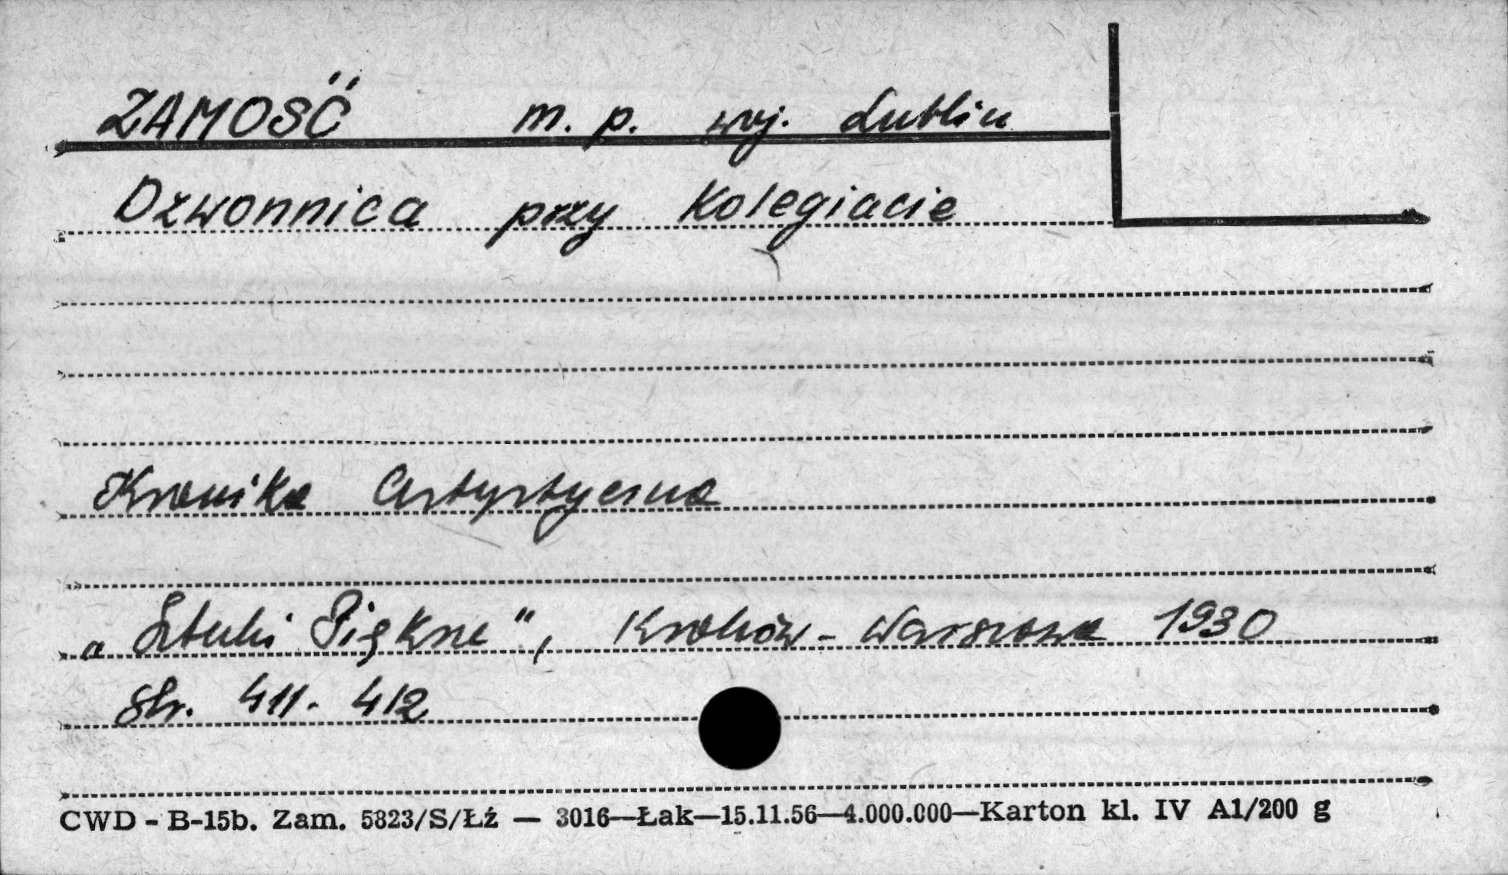 ZAMOŚĆ m. p. woj. Lublin
Dzwonnica przy Kolegiacie
Kronika Artystyczna
„Sztuki Piękne", Kraków - Warszawa 1930
str. 411. 412
CWD - B-15b. Zam. 5823/S/Łź — 3016—Łak—15.11.56—4.000.000—Karton kl. IV A1/200 g